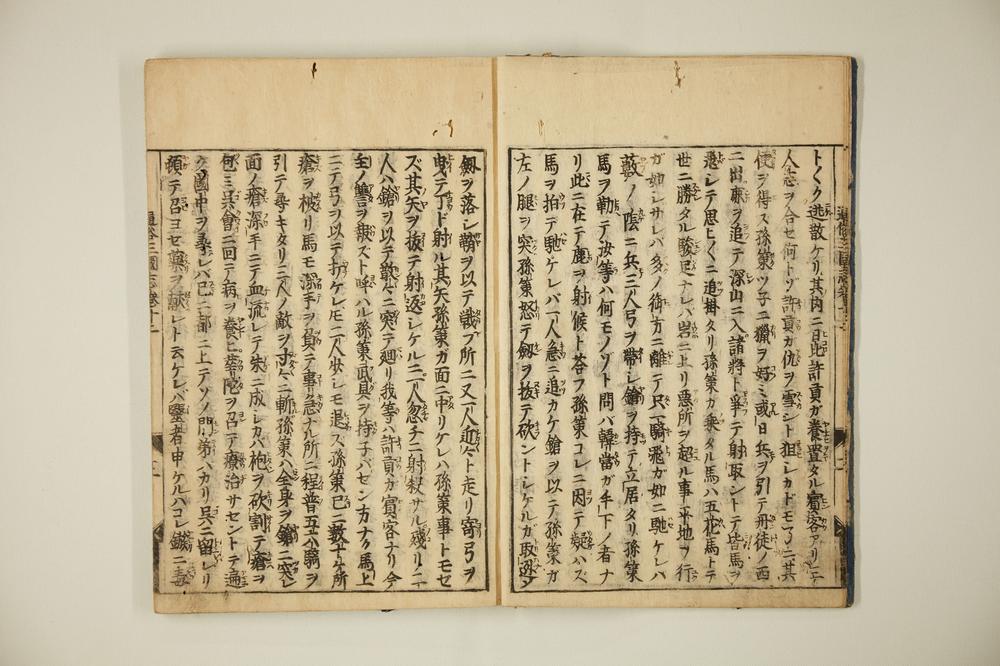 トク〱逃散ケリ其内ニ日比許貢ガ養置タル賓客アリ三
人志ヲ合セ何トゾ許貢カ仇ヲ雪ント狙シカドモスニ其
便ヲ得ス孫策ツ子ニ獵ヲ好ミ或日兵ヲ引テ丹徒ノ西
ニ出鹿ヲ追テ深山ニ入諸將ト爭テ射取ントテ皆馬ヲ
思上〱ニ追掛タリ孫策カ乘タル馬ハ五花馬トテ
世ニ勝タル駿足ナレバ岩ニ上リ惡所ヲ超ル事平地ヲ行
ガ如シサレバ多ノ御方ニ離テ只一騎飛ガ如ニ馳ケレハ
藪ノ陰ニ兵三人弓ヲ帶シ鎗ヲ持テ立居タリ孫策
馬ヲ勒テ汝等ハ何モノゾト問バ韓當ガ手下ノ者ナ
リ此ニ在テ鹿ヲ射候ト荅フ孫策コレニ因テ疑ハズ
馬ヲ拍テ馳ケレバ一人急ニ追カケ鎗ヲ以テ孫策ガ
左ノ腿ヲ突孫策怒テ劔ヲ抜テ砍ントシケルガ取
劔ヲ落シ鞘ヲ以テ戰フ所ニ又一人近々ト走リ寄弓ヲ
曳テ丁ド射ル其矢孫策ガ面ニ中リケレハ孫策事トモセ
ズ其矢ヲ抜テ射返シケルニ一人忽チニ射殺サル殘リ二
人ハ鎗ヲ以テ散々ニ突テ廻リ我等ハ許貢カ賓客ナリ今
主ノ讐ヲ報ズト呼ハル孫策武具ヲ持子バセン方ナク馬上
ニテ弓ヲ以テ打ケレモ二人少シモ退ズ孫策已ニ數十ケ所
瘡ヲ被リ馬モ深手ヲ負テ事急ナル所ニ程普五六騎ヲ
引テ尋キタリ三人ノ敵ヲ寸々ニ斬孫策ハ全身ヲ鎗ニ突レ
面ノ瘡深手ニテ血流レテ朱ニ成シカバ袍ヲ砍割テ瘡ヲ
包ミ呉會ニ回テ病ヲ養ヒ華陀ヲ召テ療治サセントテ遍
國中ヲ尋レバ已ニ都ニ上テソノ門弟バカリ呉ニ留レリ
頓テ召ヨセ藥ヲ試レト云ケレバ醫者申ケルハコレ鏃ニ毒
通俗三國志卷十二